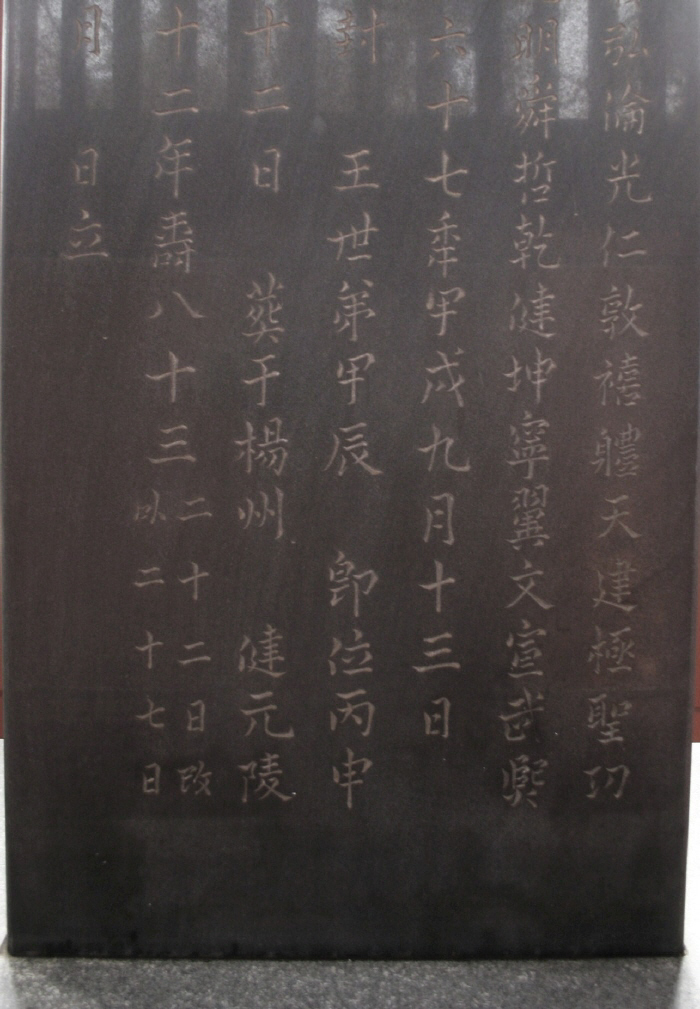 弘淪光仁敦禧軆天建極聖功
明舜哲乾健坤寧翼文宣武熙
六十七秊甲戌九月十三日
封 王世弟甲辰 即位丙申
十二日 葬于楊州 健元陵
十二年壽八十三二十二日改以二十七日
月 日立